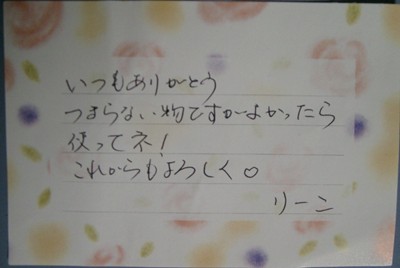 いつもありがとう
つまらない物ですがよかったら
使ってネ!
これからもよろしく♡
リーン